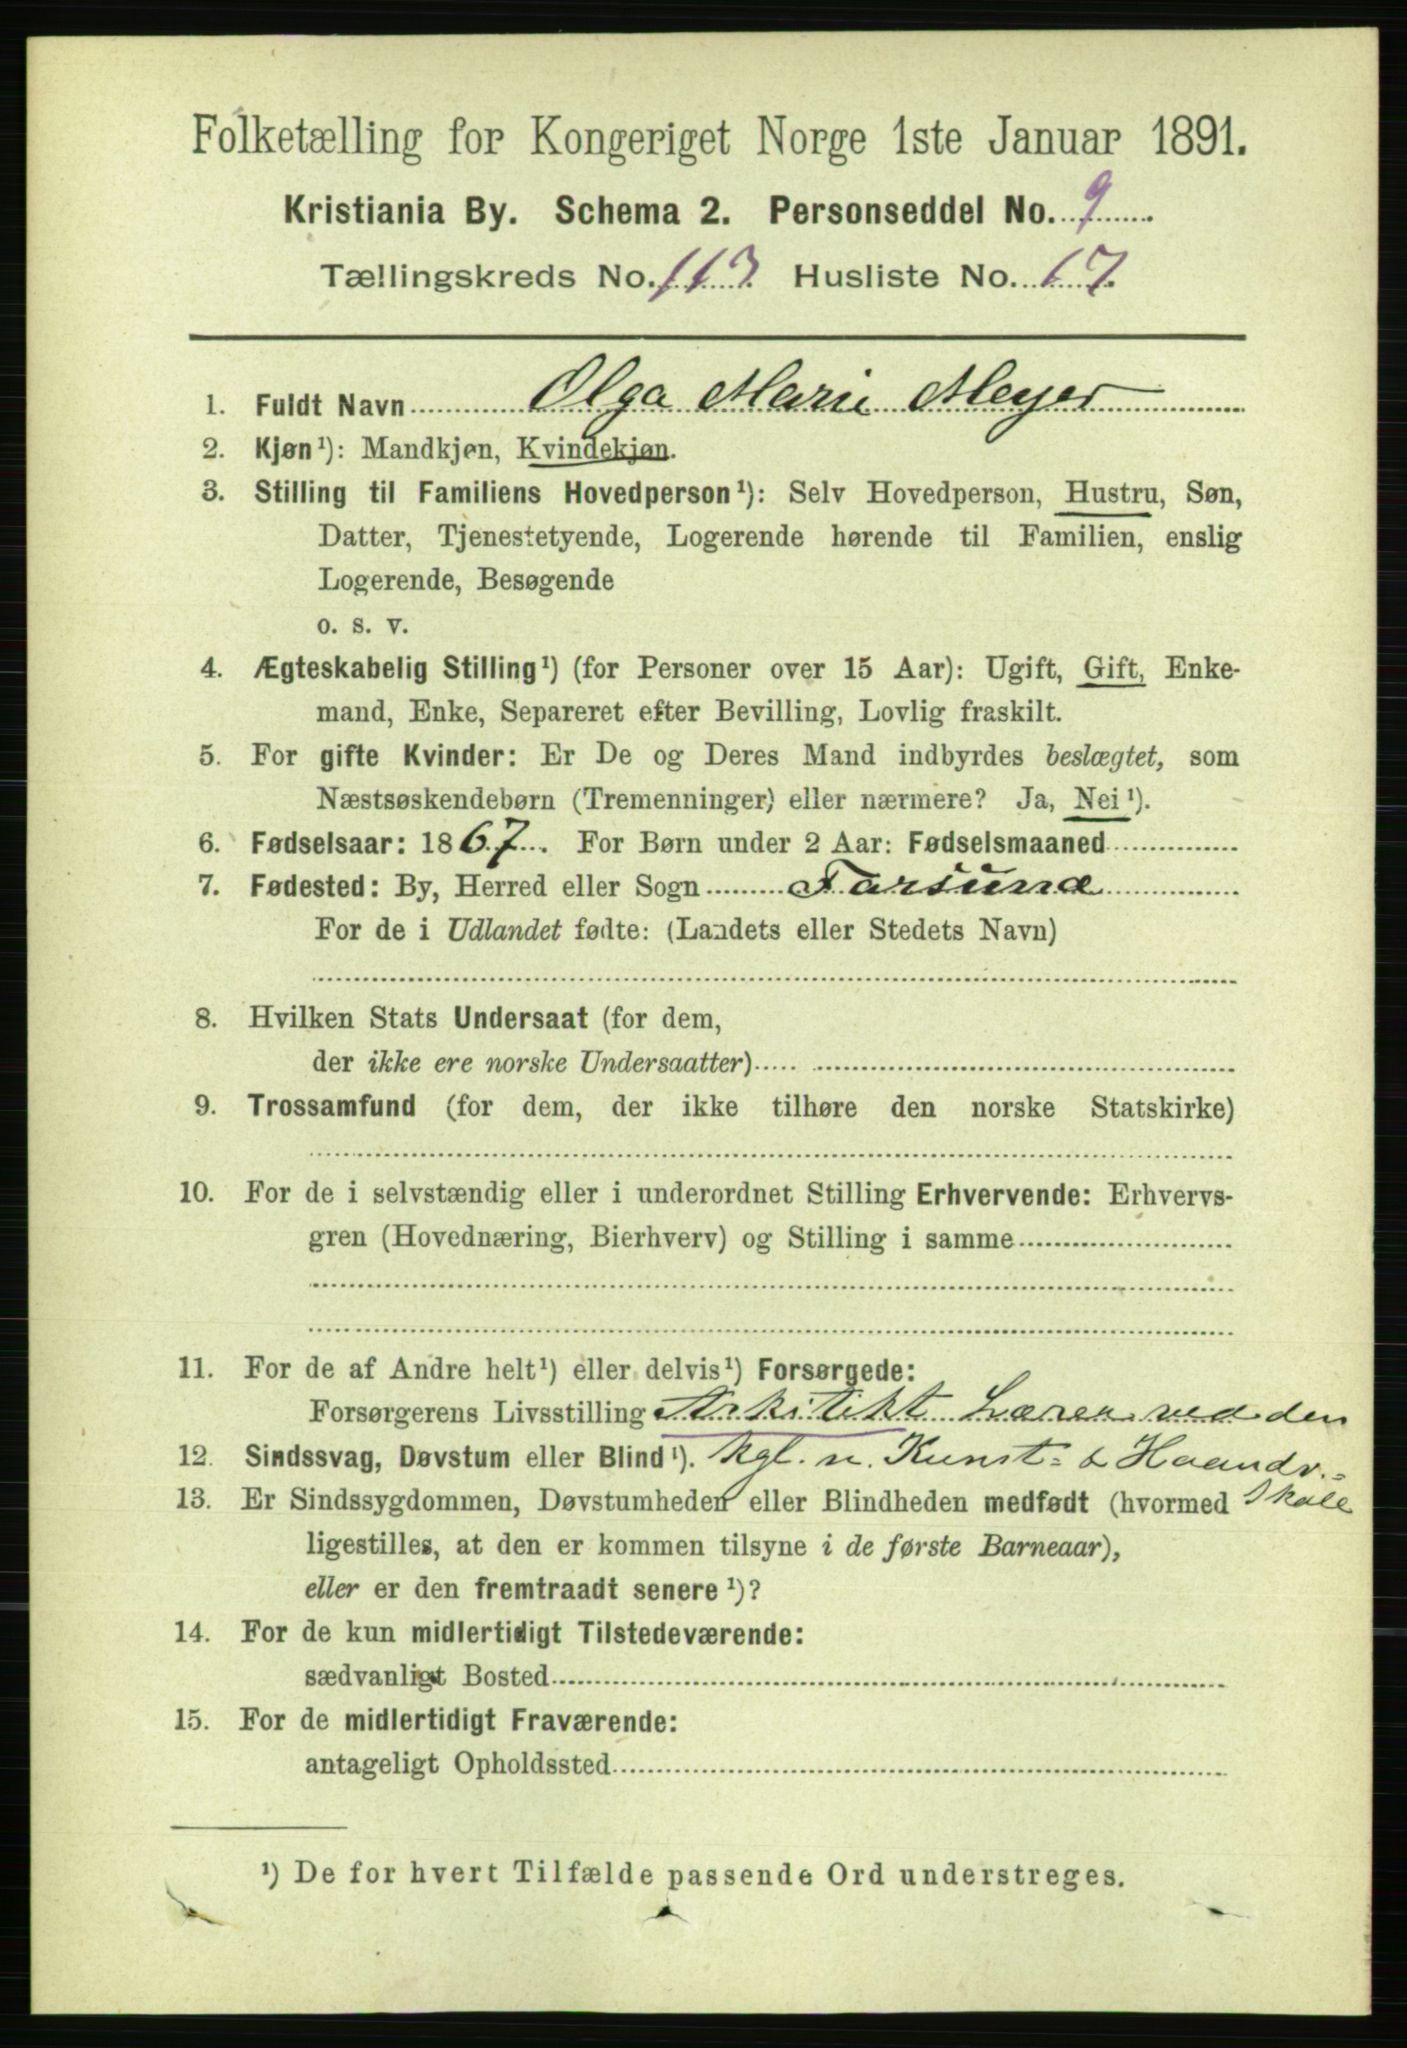 Folketælling for Kongeriget Norge 1ste Januar 1891.
Kristiania By. Schema 2. Personseddel No. 9
Tællingskreds No. 113. Husliste No. 17.
1. Fuldt Navn Olga Marie Meyer
2. Kjøn¹): Mandkjøn, Kvindekjøn.
3. Stilling til Familiens Hovedperson¹): Selv Hovedperson, Hustru, Søn,
Datter, Tjenestetyende, Logerende hørende til Familien, enslig
Logerende, Besøgende
o. s. v.
4. Ægteskabelig Stilling¹) (for Personer over 15 Aar): Ugift, Gift, Enke-
mand, Enke, Separeret efter Bevilling, Lovlig fraskilt.
5. For gifte Kvinder: Er De og Deres Mand indbyrdes beslægtet, som
Næstsøskendebørn (Tremenninger) eller nærmere? Ja, Nei¹).
6. Fødselsaar: 1867. For Børn under 2 Aar: Fødselsmaaned
7. Fødested: By, Herred eller Sogn Farsund
For de i Udlandet fødte: (Landets eller Stedets Navn)
8. Hvilken Stats Undersaat (for dem,
der ikke ere norske Undersaatter)
9. Trossamfund (for dem, der ikke tilhøre den norske Statskirke)
10. For de i selvstændig eller i underordnet Stilling Erhvervende: Erhvervs-
gren (Hovednæring, Bierhverv) og Stilling i samme
11. For de af Andre helt¹) eller delvis¹) Forsørgede:
Forsørgerens Livsstilling Arkitekt Lærer ved den
12. Sindssvag, Døvstum eller Blind¹). kgl. n. Kunst- & Haandv.-
13. Er Sindssygdommen, Døvstumheden eller Blindheden medfødt (hvormed Skole
ligestilles, at den er kommen tilsyne i de første Barneaar),
eller er den fremtraadt senere¹)?
14. For de kun midlertidigt Tilstedeværende:
sædvanligt Bosted
15. For de midlertidigt Fraværende:
antageligt Opholdssted
¹) De for hvert Tilfælde passende Ord understreges.